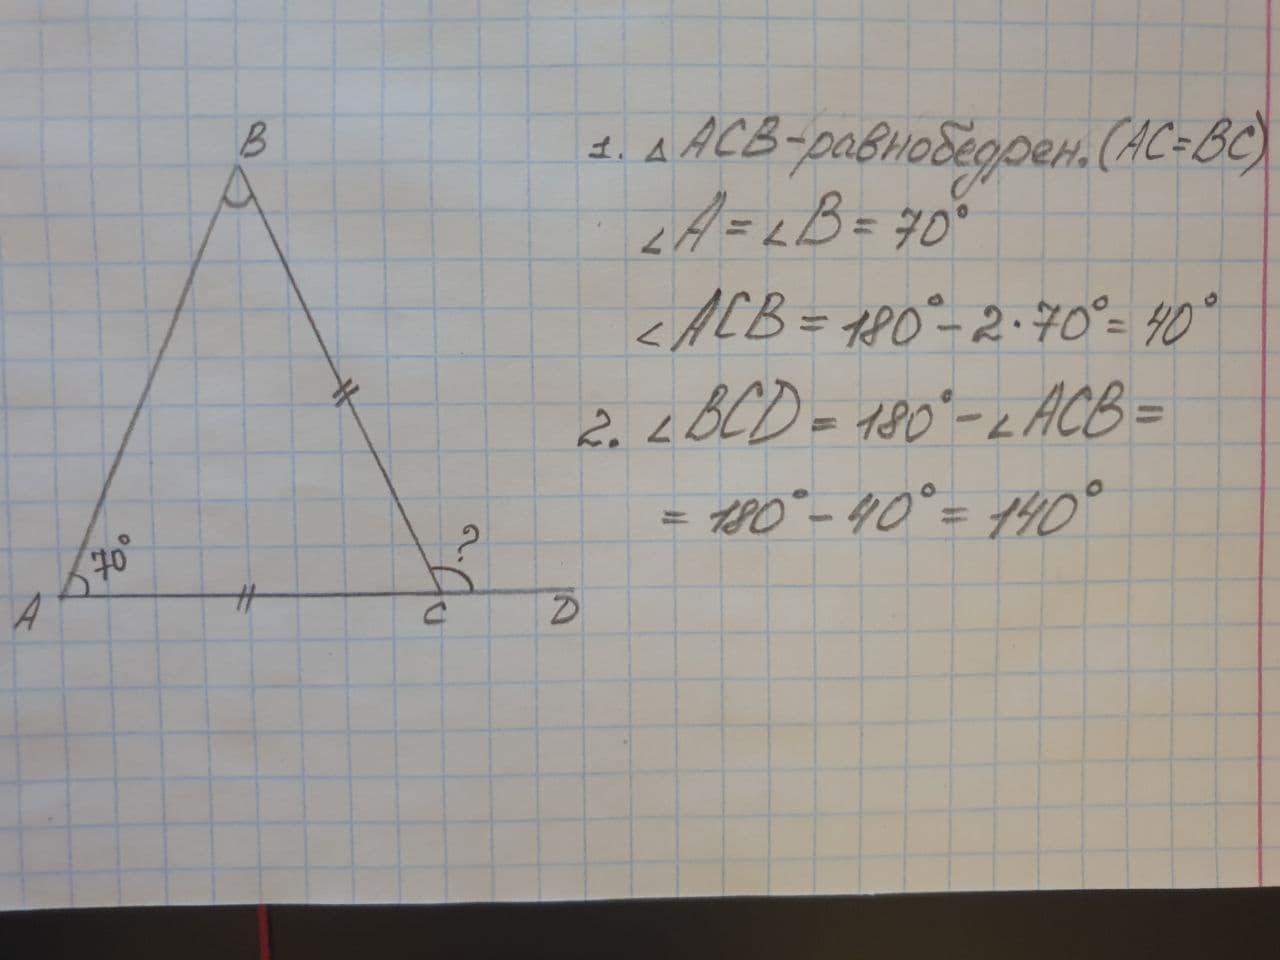 B
1. △ ACB-равнобедрен.(AC=BC)
∠A=∠B=70°
∠ACB=180°-2·70°=40°
2. ∠BCD=180°-∠ACB=
=180°-40°=140°
70°
?
A
C
D